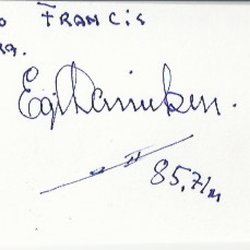 o FRANCIS
Egil Danielsen.
85,71m